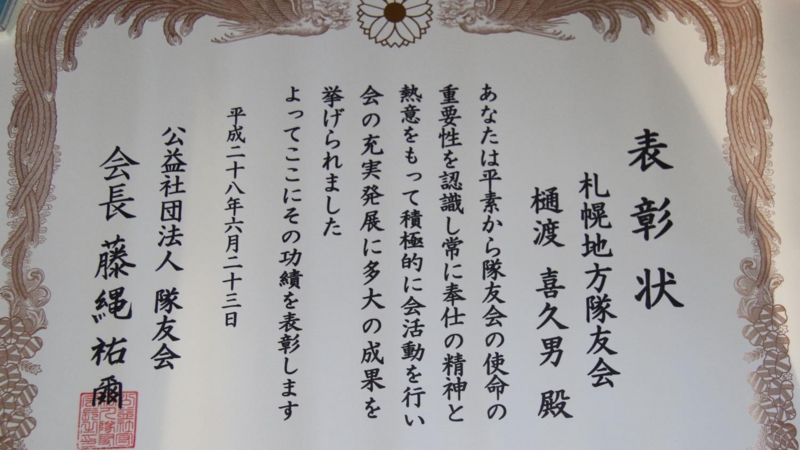 表彰状
札幌地方隊友会
樋渡 喜久男 殿
あなたは平素から隊友会の使命の
重要性を認識し常に奉仕の精神と
熱意をもって積極的に会活動を行い
会の充実発展に多大の成果を
挙げられました
よってここにその功績を表彰します
平成二十八年六月二十三日
公益社団法人 隊友会
会長 藤縄 祐爾